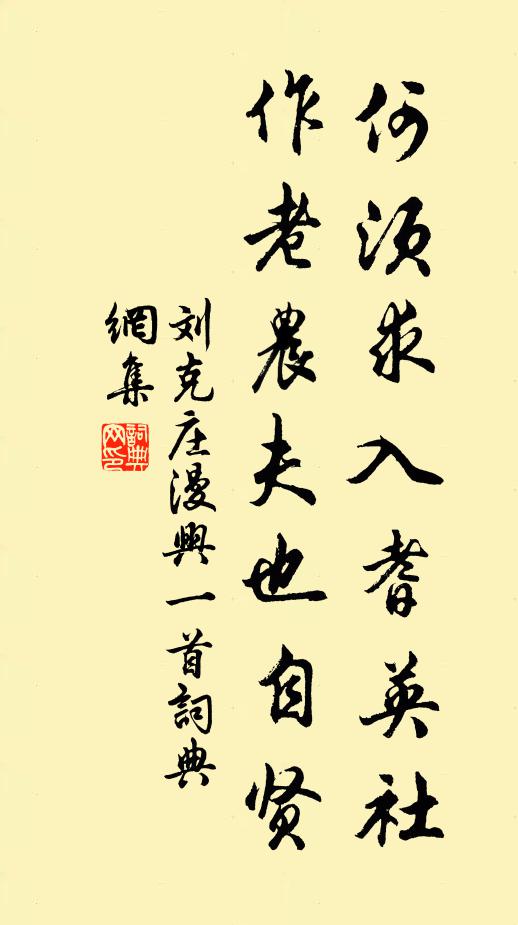 何须求入耆英社
作老農夫也自贤
刘克庄漫興一首詞典
網集
詞典
网印